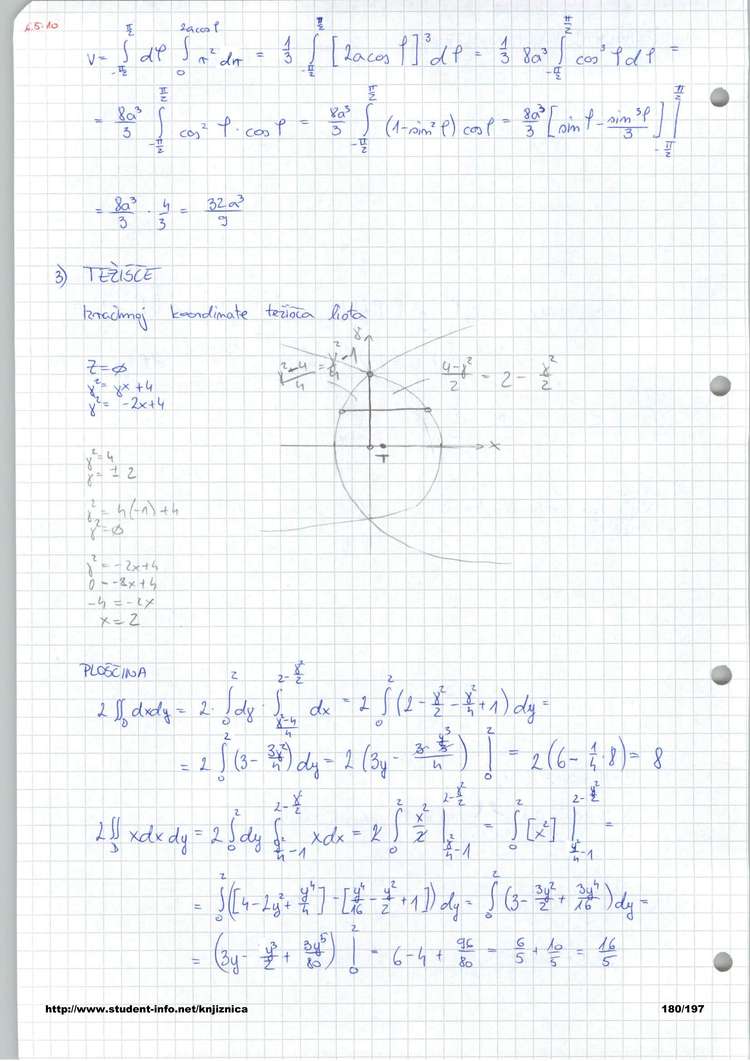 6.5.10
V = ∫_{-π/2}^{π/2} dφ ∫_0^{2acosφ} r² dr = 1/3 ∫_{-π/2}^{π/2} [2acosφ]³ dφ = 1/3 8a³ ∫_{-π/2}^{π/2} cos³φ dφ =
= 8a³/3 ∫_{-π/2}^{π/2} cos²φ · cosφ = 8a³/3 ∫_{-π/2}^{π/2} (1-sin²φ) cosφ = 8a³/3 [sinφ - sin³φ/3] |_{-π/2}^{π/2}
= 8a³/3 · 4/3 = 32a³/9
3) TEŽIŠČE
Izračunaj koordinate težišča lista
y
(y²-4)/4 = y²/4 - 1
(4-y²)/2 = 2 - y²/2
x
T
z = ∅
y² = 4x + 4
y² = -2x + 4
y² = 4
y = ± 2
y² = 4(-1) + 4
y² = ∅
y² = -2x + 4
0 = -2x + 4
-4 = -2x
x = 2
PLOŠČINA
2 ∬_D dxdy = 2 · ∫_0^2 dy · ∫_{(y²-4)/4}^{2-y²/2} dx = 2 ∫_0^2 (2 - y²/2 - y²/4 + 1) dy =
= 2 ∫_0^2 (3 - 3y²/4) dy = 2 (3y - (3 y³/3)/4) |_0^2 = 2(6 - 1/4 · 8) = 8
2 ∬_D xdxdy = 2 ∫_0^2 dy ∫_{y²/4-1}^{2-y²/2} xdx = 2 ∫_0^2 x²/2 |_{y²/4-1}^{2-y²/2} = ∫_0^2 [x²] |_{y²/4-1}^{2-y²/2} =
= ∫_0^2 ([4 - 2y² + y⁴/4] - [y⁴/16 - y²/2 + 1]) dy = ∫_0^2 (3 - 3y²/2 + 3y⁴/16) dy =
= (3y - y³/2 + 3y⁵/80) |_0^2 = 6 - 4 + 96/80 = 6/5 + 10/5 = 16/5
http://www.student-info.net/knjiznica
180/197